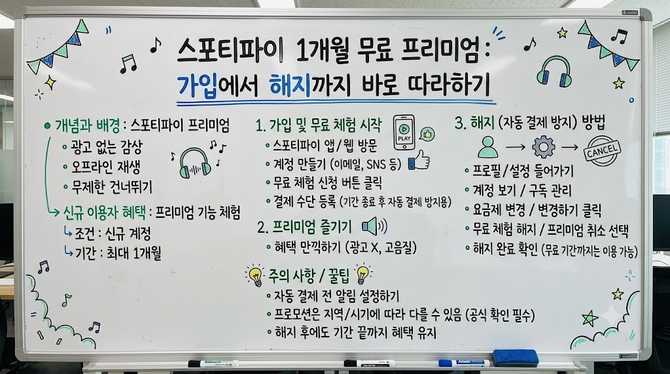 스포티파이 1개월 무료 프리미엄:
가입에서 해지까지 바로 따라하기
개념과 배경: 스포티파이 프리미엄
광고 없는 감상
오프라인 재생
무제한 건너뛰기
신규 이용자 혜택: 프리미엄 기능 체험
조건: 신규 계정
기간: 최대 1개월
1. 가입 및 무료 체험 시작
스포티파이 앱/웹 방문
계정 만들기 (이메일, SNS 등)
무료 체험 신청 버튼 클릭
결제 수단 등록 (기간 종료 후 자동 결제 방지용)
PLAY
2. 프리미엄 즐기기
혜택 만끽하기 (광고 X, 고음질)
3. 해지 (자동 결제 방지) 방법
CANCEL
프로필/설정 들어가기
계정 보기 / 구독 관리
요금제 변경 / 변경하기 클릭
무료 체험 해지 / 프리미엄 취소 선택
해지 완료 확인 (무료 기간까지는 이용 가능)
주의 사항 / 꿀팁
자동 결제 전 알림 설정하기
프로모션은 지역/시기에 따라 다를 수 있음 (공식 확인 필수)
해지 후에도 기간 끝까지 혜택 유지